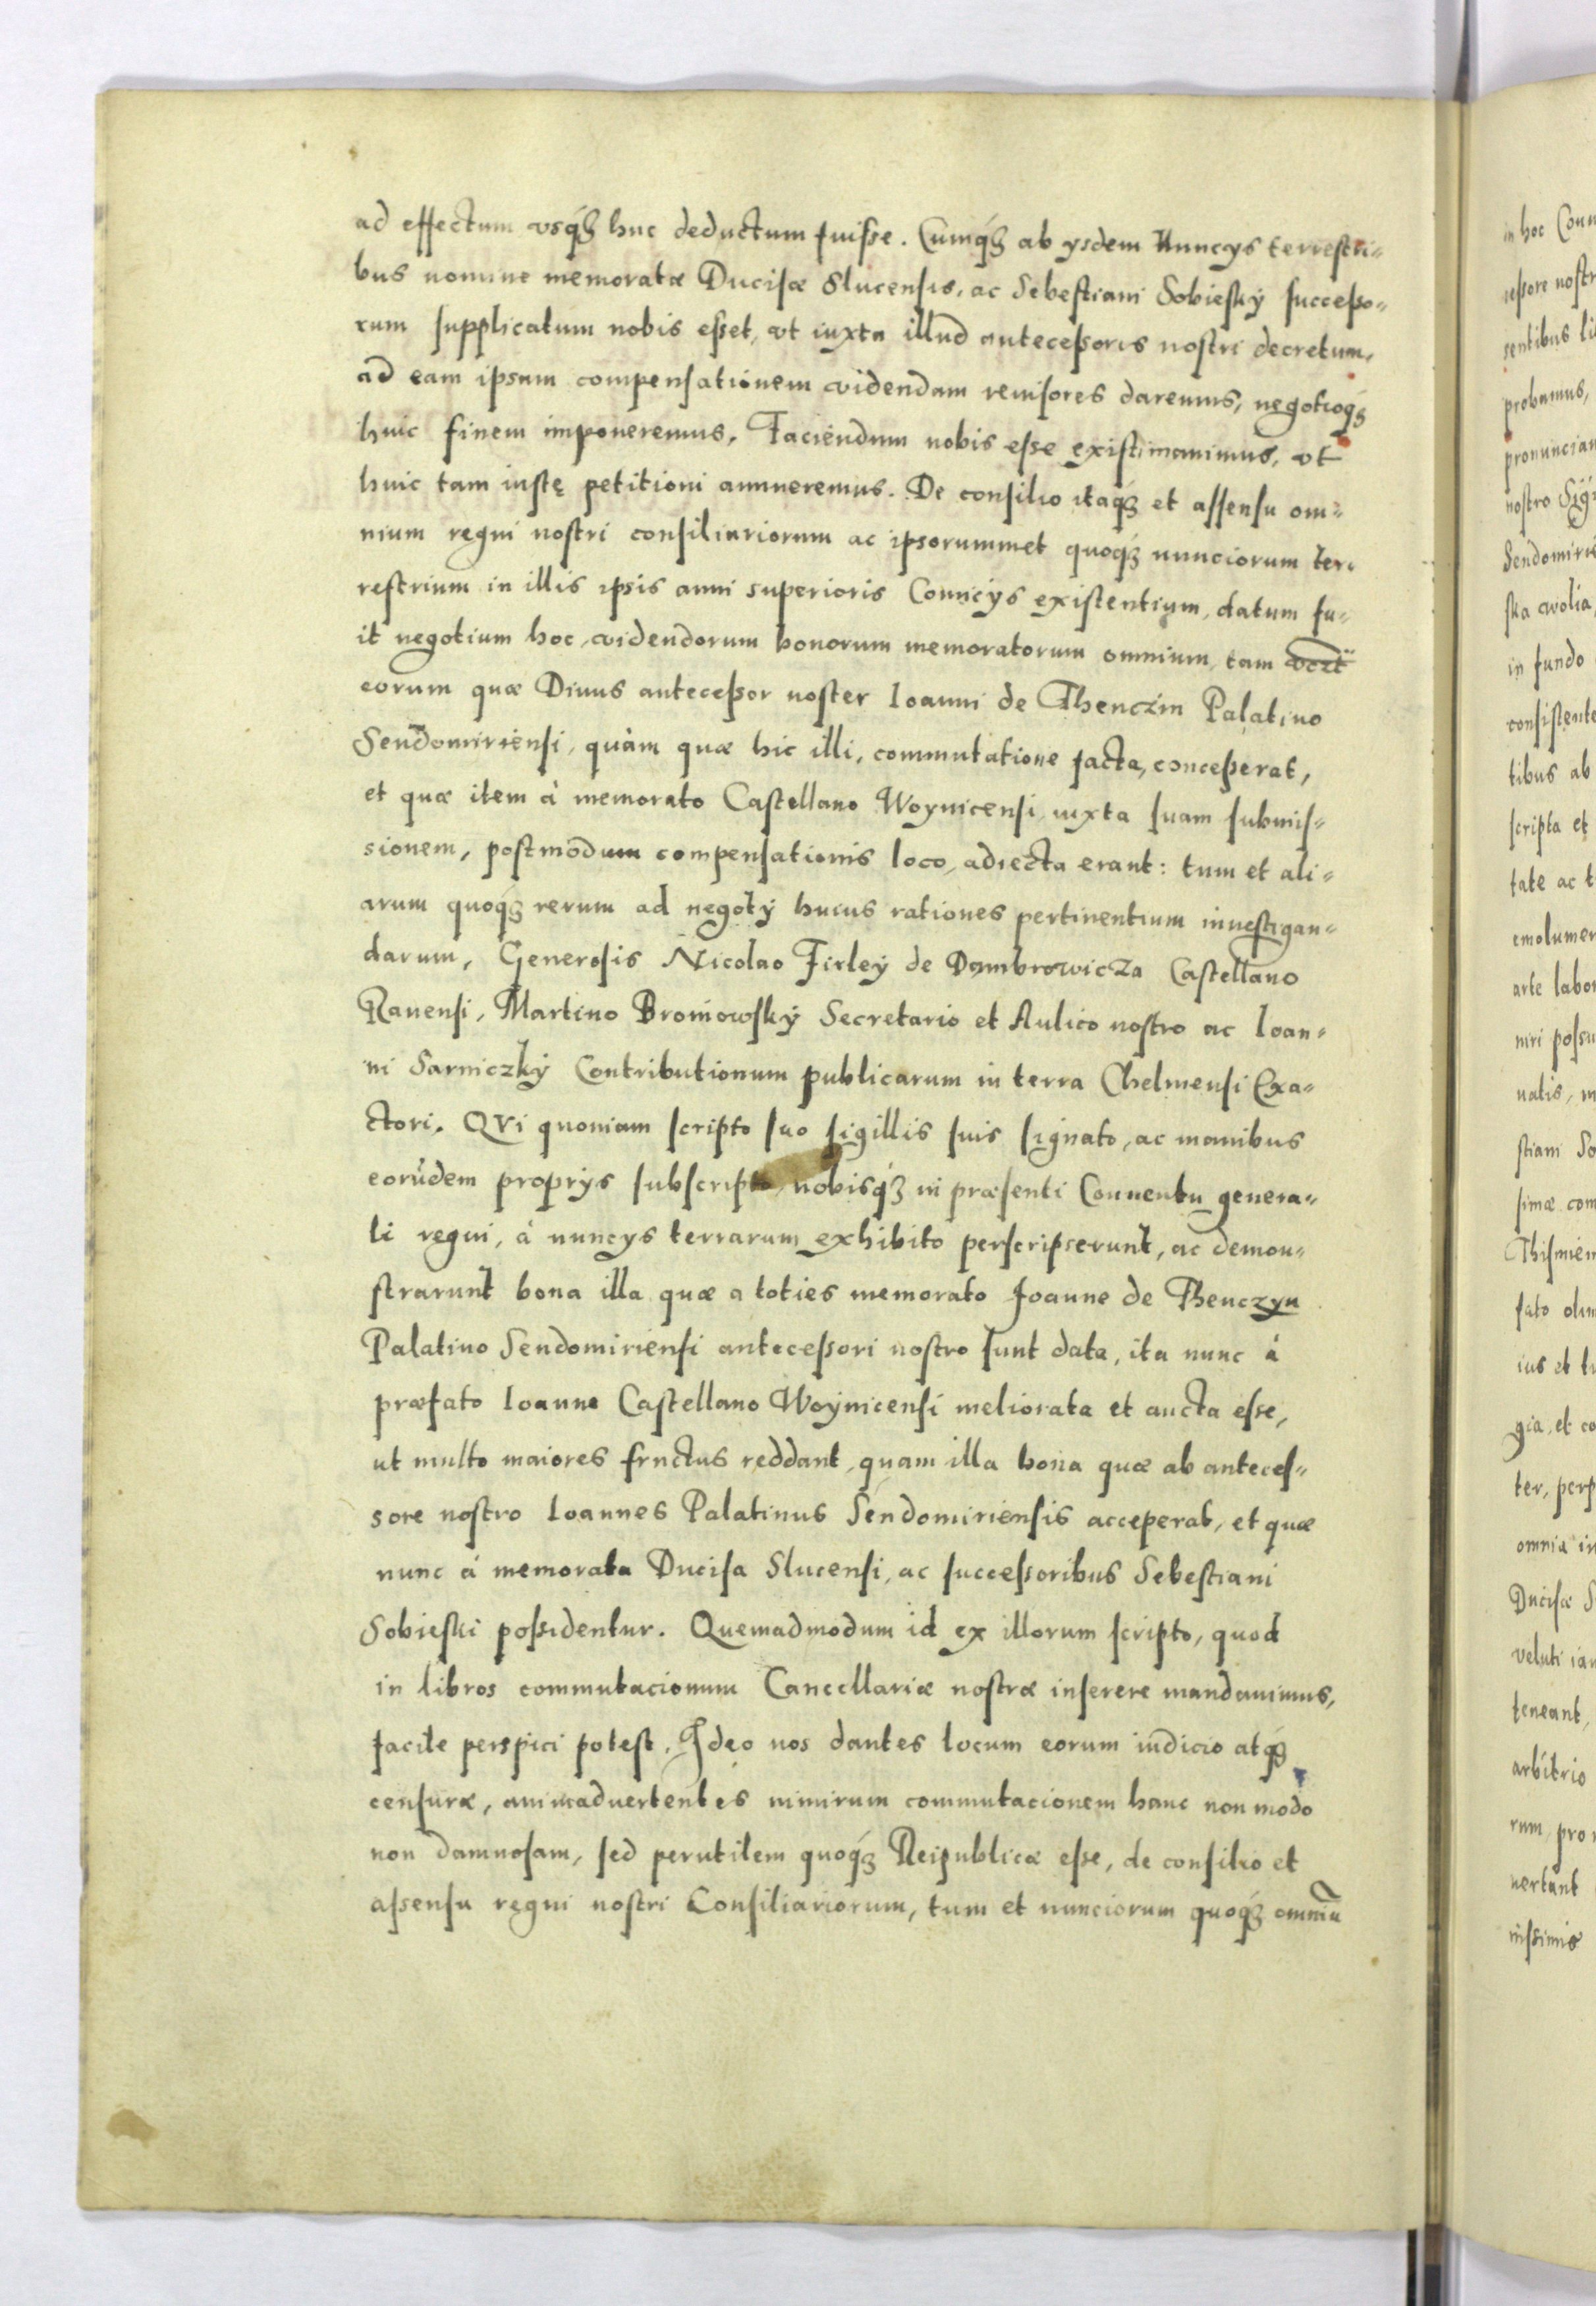 ad effectum vsq́ꝫ huc deductum fuisse. Cumq́ꝫ ab ysdem Nuncys terrestri-
bus nomine memoratæ Ducisæ Slucensis, ac Sebestiani Sobiesky successo-
rum supplicatum nobis esset, vt iuxta illud antecessoris nostri decretum,
ad eam ipsam compensationem videndam reuisores daremus, negotioq́ꝫ
huic finem imponeremus, Faciendum nobis esse existimauimus, vt
huic tam iustę petitioni annueremus. De consilio itaq́ꝫ et assensu om-
nium regni nostri consiliariorum ac ipsorummet quoq́ꝫ nunciorum ter-
restrium in illis ipsis anni superioris Conucys existentium, datum fu-
it negotium hoc, videndorum bonorum memoratorum omnium, tam
eorum quæ Diuus antecessor noster Ioanni de Thenczin Palatino
Sendomiriensi, quàm quæ hic illi, commutatione facta, concesserat,
et quæ item à memorato Castellano Woynicensi, iuxta suam submis-
sionem, postmodum compensationis loco, adiecta erant: tum et ali-
arum quoq́ꝫ rerum ad negoty huius rationes pertinentium inuestigan-
darum, Generosis Nicolao Firley de Dambrowicza Castellano
Rauensi, Martino Broniowsky Secretario et Aulico nostro ac Ioan-
ni Sarniczky Contributionum publicarum in terra Chelmensi Exa-
ctori. QVi quoniam scripto suo sigillis suis signato, ac manibus
eorũdem proprys subscripto, nobisq́ꝫ in præsenti Conuentu genera-
li regni, à nuncys terrarum exhibito perscripserunt, ac demon-
strarunt bona illa quæ a toties memorato Joanne de Thenczyn
Palatino Sendomiriensi antecessori nostro sunt data, ita nunc à
præfato Ioanne Castellano Woynicensi meliorata et aucta esse,
ut multo maiores fructus reddant, quam illa bona quæ ab anteces-
sore nostro Ioannes Palatinus Sendomiriensis acceperat, et quæ
nunc à memorata Ducisa Slucensi, ac successoribus Sebestiani
Sobieski possidentur. Quemadmodum id ex illorum scripto, quod
in libros commutacionum Cancellariæ nostræ inserere mandauimus,
facile perspici potest, Ideo nos dantes locum eorum iudicio atq́ꝫ
censuræ, animaduertentes nimirum commutacionem hanc non modo
non damnosam, sed perutilem quoq́ꝫ Reipublicæ esse, de consilio et
assensu regni nostri Consiliariorum, tum et nunciorum quoq́ꝫ omniũ